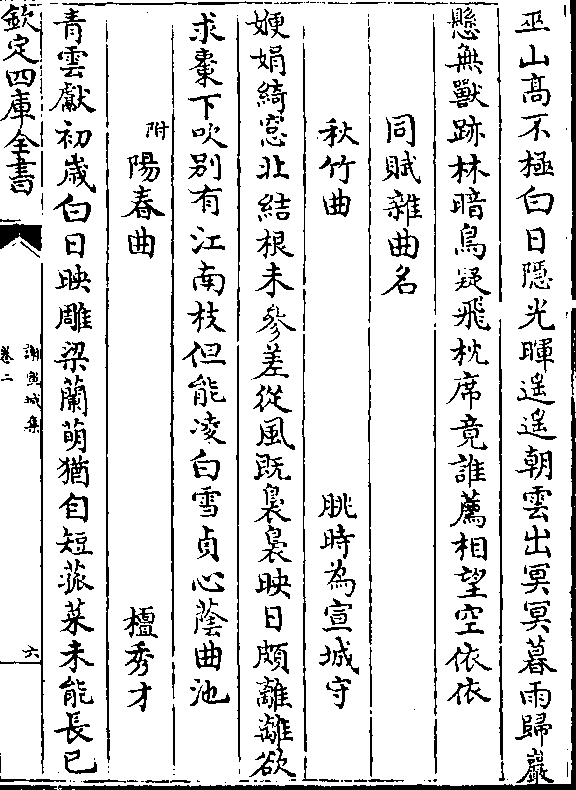 巫山髙不極白日隱光暉遥遥朝雲出冥冥暮雨歸巖
懸無獸跡林暗鳥疑飛枕席竟誰薦相望空依依
同賦雜曲名
秋竹曲 朓時為宣城守
㛹娟綺窓北結根未參差從風既裊裊映日頗離離欲
求棗下吹别有江南枝但能凌白雪貞心蔭曲池
附陽春曲 檀秀才
青雲獻初歲白日映雕梁蘭萌猶自短菰菜未能長已
欽定四庫全書
謝宣城集
卷二
六